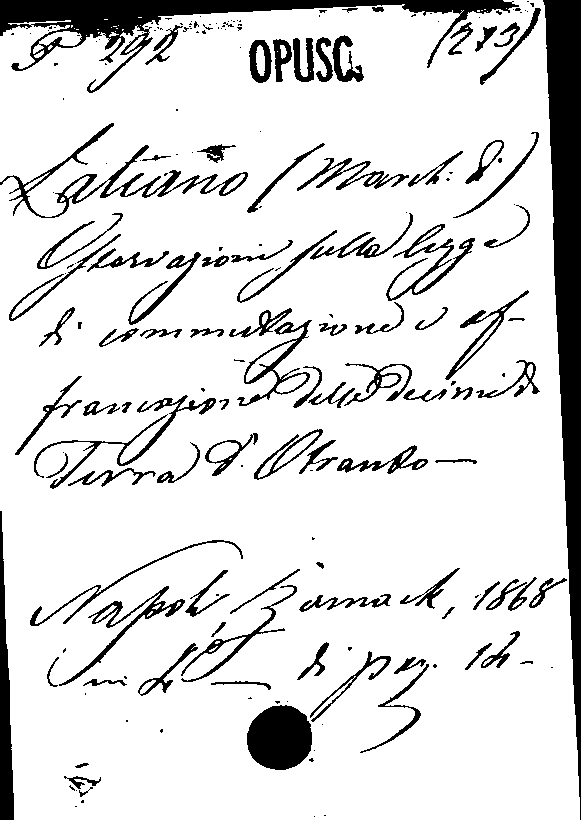 P. 292 OPUSC. (273)
Latiano (March: di)
Osservazioni sulla legge
di commutazione e af-
francazione delle decime di
Terra d'Otranto—
Napoli, 1868
in 4º — di pag. 14-